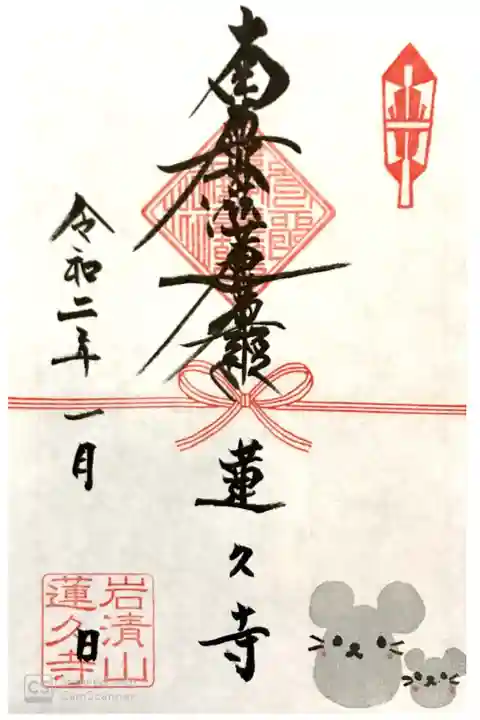 南無妙法蓮華経
蓮久寺
令和二年一月
日
岩清山
蓮久寺
CS
CamScanner